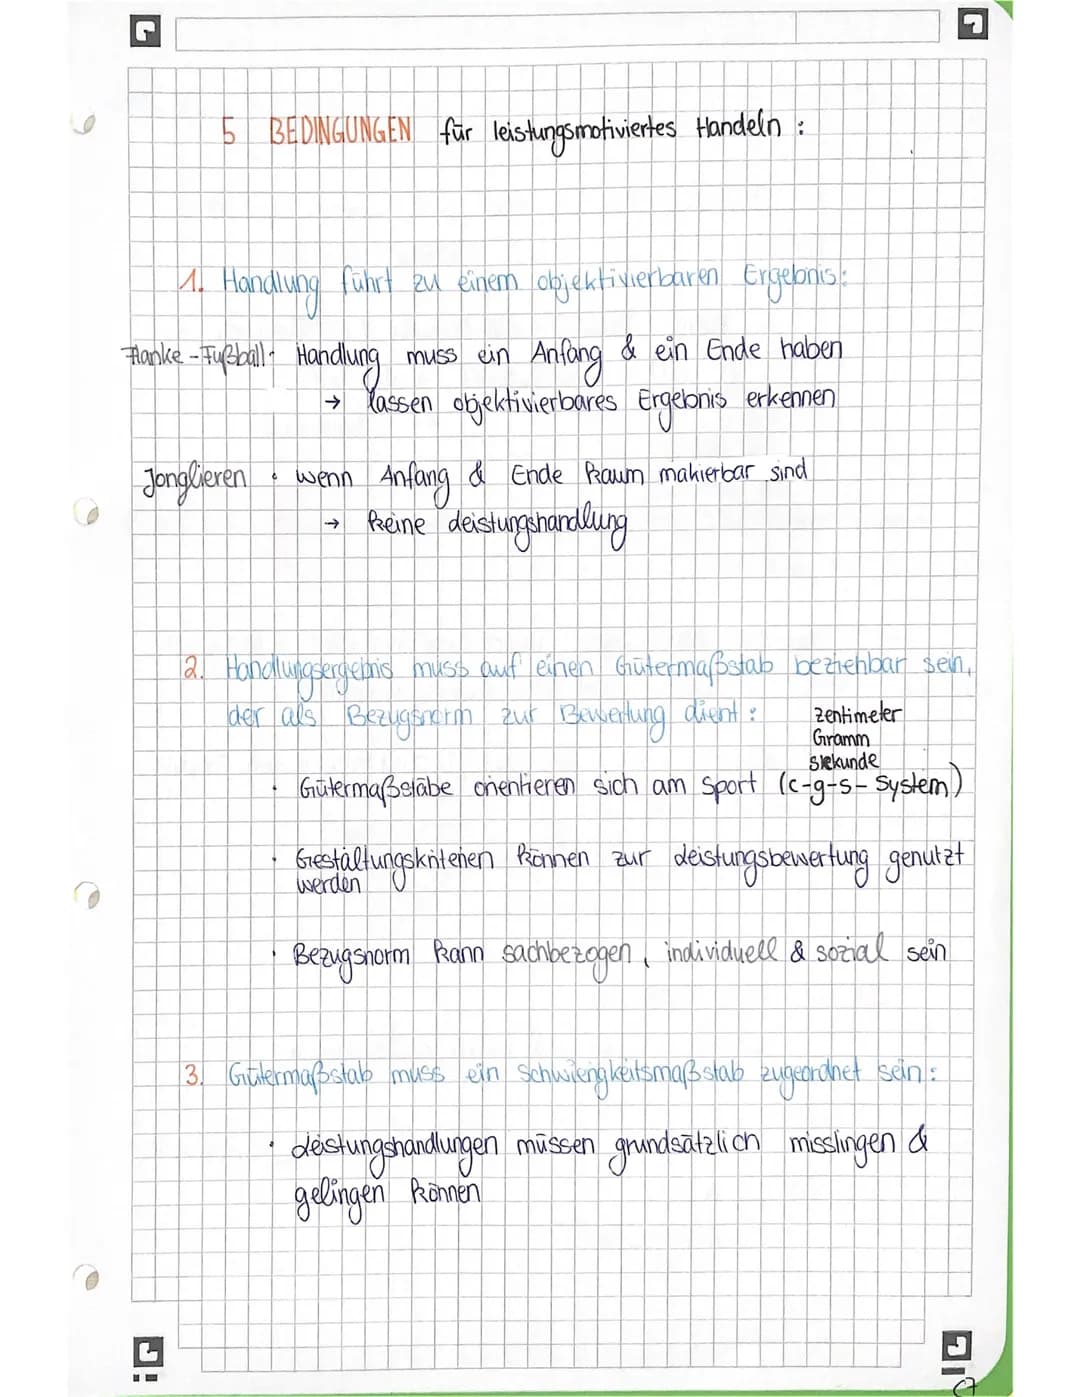 5 BEDINGUNGEN für leistungsmotiviertes Handeln :
1. Handlung führt zu einem objektivierbaren Ergebnis:
Flanke - Fußball · Handlung muss ein Anfang & ein Ende haben
→ lassen objektivierbares Ergebnis erkennen
Jonglieren · wenn Anfang & Ende kaum makierbar sind
→ keine Leistungshandlung
2. Handlungsergebnis muss auf einen Gütermaßstab beziehbar sein,
der als Bezugsnorm zur Bewertung dient :
zentimeter
Gramm
Sekunde
· Gütermaßstäbe orientieren sich am Sport (c-g-s- System)
· Gestaltungskriterien können zur Leistungsbewertung genutzt
werden
· Bezugsnorm kann sachbezogen, individuell & sozial sein
3. Gütermaßstab muss ein Schwierigkeitsmaßstab zugeordnet sein :
· Leistungshandlungen müssen grundsätzlich misslingen &
gelingen können